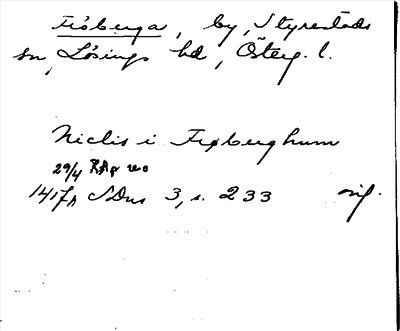 Fröberga, by, Styrestads
sn, Lösings hd, Österg. l.
Niclis i Frøberghum
29/4 RAp
1417 SDns 3, s. 233 orig.